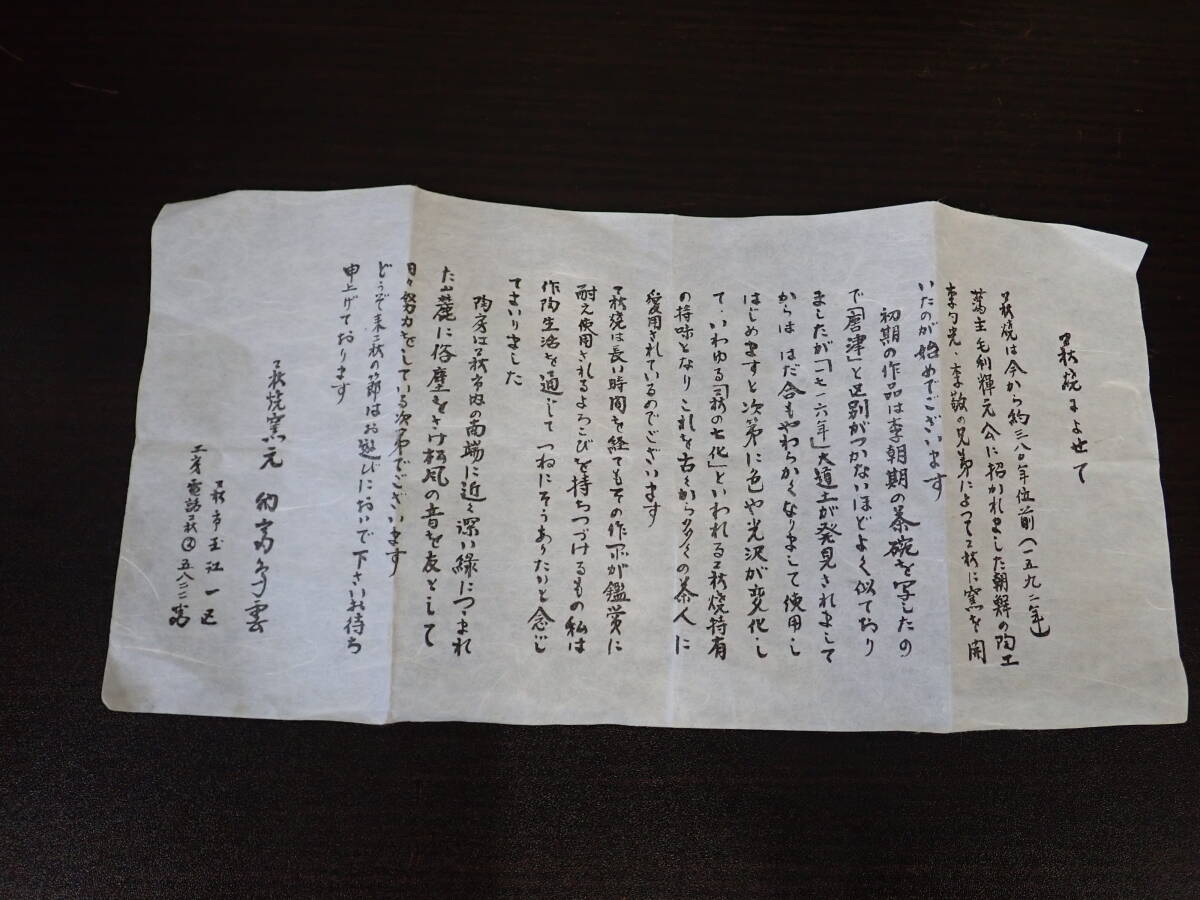 萩焼によせて
萩焼は今から約三八〇年位前(一五九二年)
藩主毛利輝元公に招かれました朝鮮の陶工
李勺光・李敬の兄弟によって萩に窯を開
いたのが始めでございます
初期の作品は李朝期の茶碗を写したの
で「唐津」と区別がつかないほどよく似ており
ましたが「一七一六年」大道土が発見されまして
からは はだ合もやわらかくなりまして使用し
はじめますと次第に色や光沢が変化し
て、いわゆる「萩の七化」といわれる萩焼特有
の持味となりこれを古くから多くの茶人に
愛用されているのでございます
萩焼は長い時間を経てもその作品が鑑賞に
耐え使用されるよろこびを持ちつづけるもの私は
作陶生活を通じて つねにそうありたいと念じ
てまいりました
陶房は萩市内の南端に近く深い緑につつまれ
た山麓に俗塵をさけ松風の音を友として
日々努力をしている次第でございます
どうぞ来萩の節はお遊びにおいで下さいお待ち
申上げております
萩焼窯元 雲
萩市玉江一区
工房電話萩②五八二二番